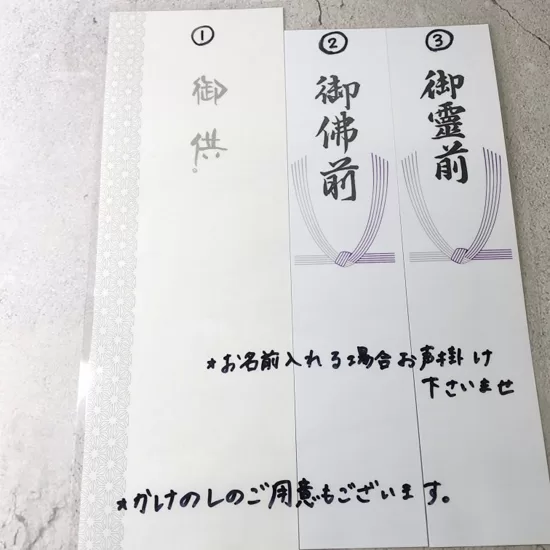 ①
御供
②
御佛前
③
御靈前
*お名前入れる場合お声掛け
下さいませ
*かけのしのご用意もございます。